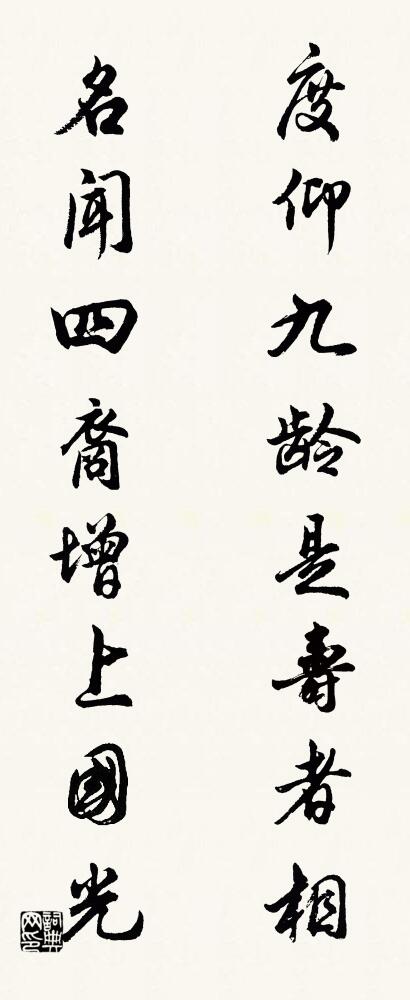 度仰九龄是寿者相
名闻四裔增上國光
詞典網印